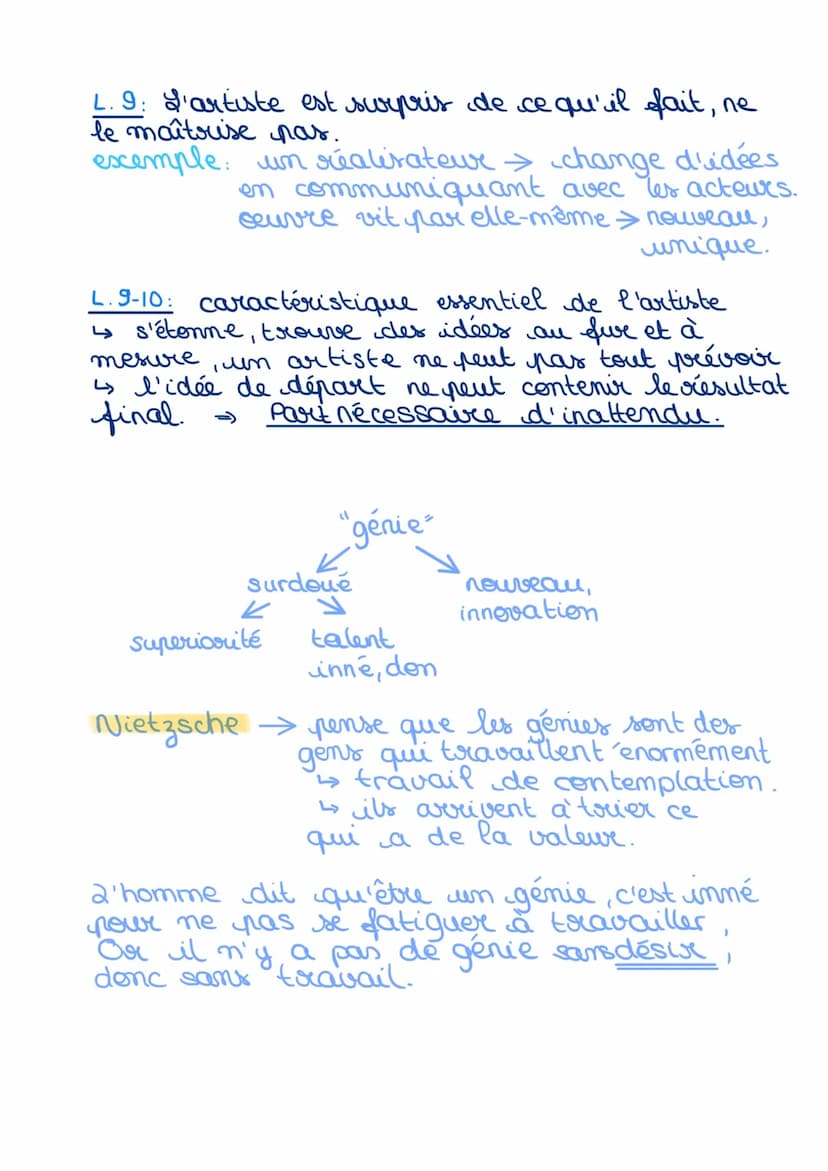 L.9: L'artiste est surpris de ce qu'il fait, ne
le maîtrise pas.
exemple: un réalisateur → change d'idées
en communiquant avec les acteurs.
œuvre vit par elle-même → nouveau,
unique.
L.9-10: caractéristique essentiel de l'artiste
↳ s'étonne, trouve des idées au fur et à
mesure, un artiste ne peut pas tout prévoir
↳ l'idée de départ ne peut contenir le résultat
final. ⇒ Part nécessaire d'inattendu.
"génie"
surdoué nouveau,
innovation
superiorité talent
inné, don
Nietzsche → pense que les génies sont des
gens qui travaillent énormément
↳ travail de contemplation.
↳ ils arrivent à trier ce
qui a de la valeur.
L'homme dit qu'être un génie, c'est inné
pour ne pas se fatiguer à travailler,
Or il n'y a pas de génie sans désir,
donc sans travail.